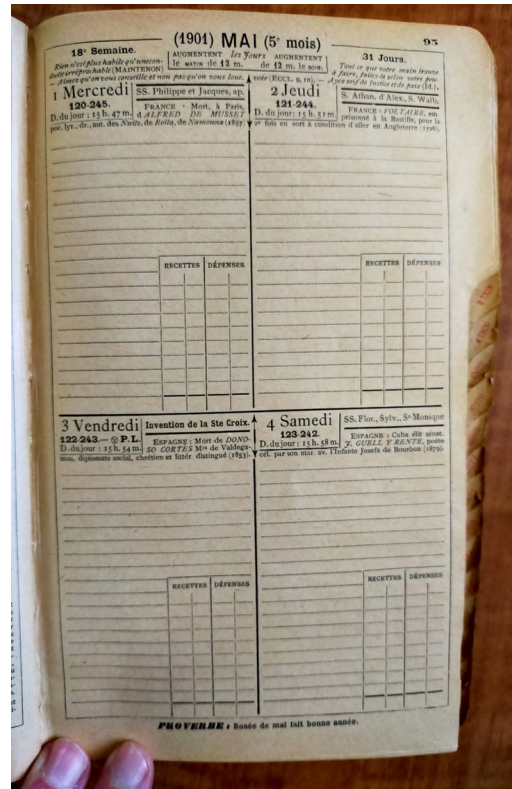 (1901) MAI (5e mois)
95
18e Semaine.
Rien n'est plus habile qu'une con-
duite irréprochable (MAINTENON)
— Aimez qu'on vous conseille et non pas qu'on vous loue.
AUGMENTENT les Jours AUGMENTENT
le MATIN de 12 m. de 12 m. le SOIR.
31 Jours.
Tout ce que votre main trouve
à faire, faites-le selon votre pou-
voir (ECCL. 9, 10). — Ayez soif de justice et de paix (Id.).
1 Mercredi
120-245.
D. du jour : 15 h. 47 m.
SS. Philippe et Jacques, ap.
FRANCE : Mort, à Paris,
d'ALFRED DE MUSSET
poc. lyr., dr., aut. des Nuits, de Rolla, de Namouna (1857)
RECETTES DÉPENSES
2 Jeudi
121-244.
D. du jour : 15 h. 51 m.
S. Athan. d'Alex., S. Walb.
FRANCE : VOLTAIRE, em-
prisonné à la Bastille, pour la
2e fois en sort à condition d'aller en Angleterre (1726).
RECETTES DÉPENSES
3 Vendredi
122-243.— P. L.
D. du jour : 15 h. 54 m.
Invention de la Ste Croix.
ESPAGNE : Mort de DONO-
SO CORTÈS Mis de Valdega-
mas, diplomate social, chrétien et littér distingué (1853).
RECETTES DÉPENSES
4 Samedi
123-242.
D. du jour : 15 h. 58 m.
SS. Flor., Sylv., Se Monique
ESPAGNE : Cuba élit sénat.
J. GUELL Y RENTE, poète
cél. par son mar. av. l'Infante Josefa de Bourbon (1879).
RECETTES DÉPENSES
PROVERBE : Rosée de mai fait bonne année.